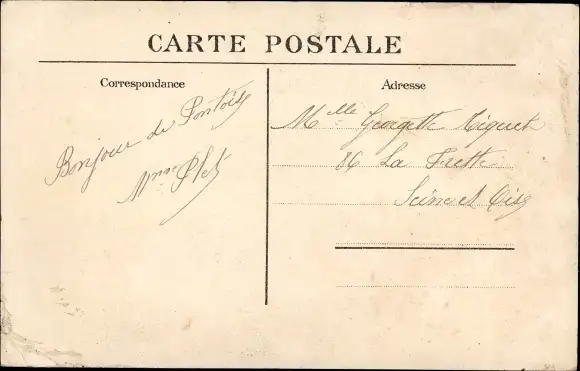 CARTE POSTALE
Correspondance
Bonjour de Pontoise
Mme Plet
Adresse
Mlle Georgette Riguet
86 La Frette
Seine et Oise